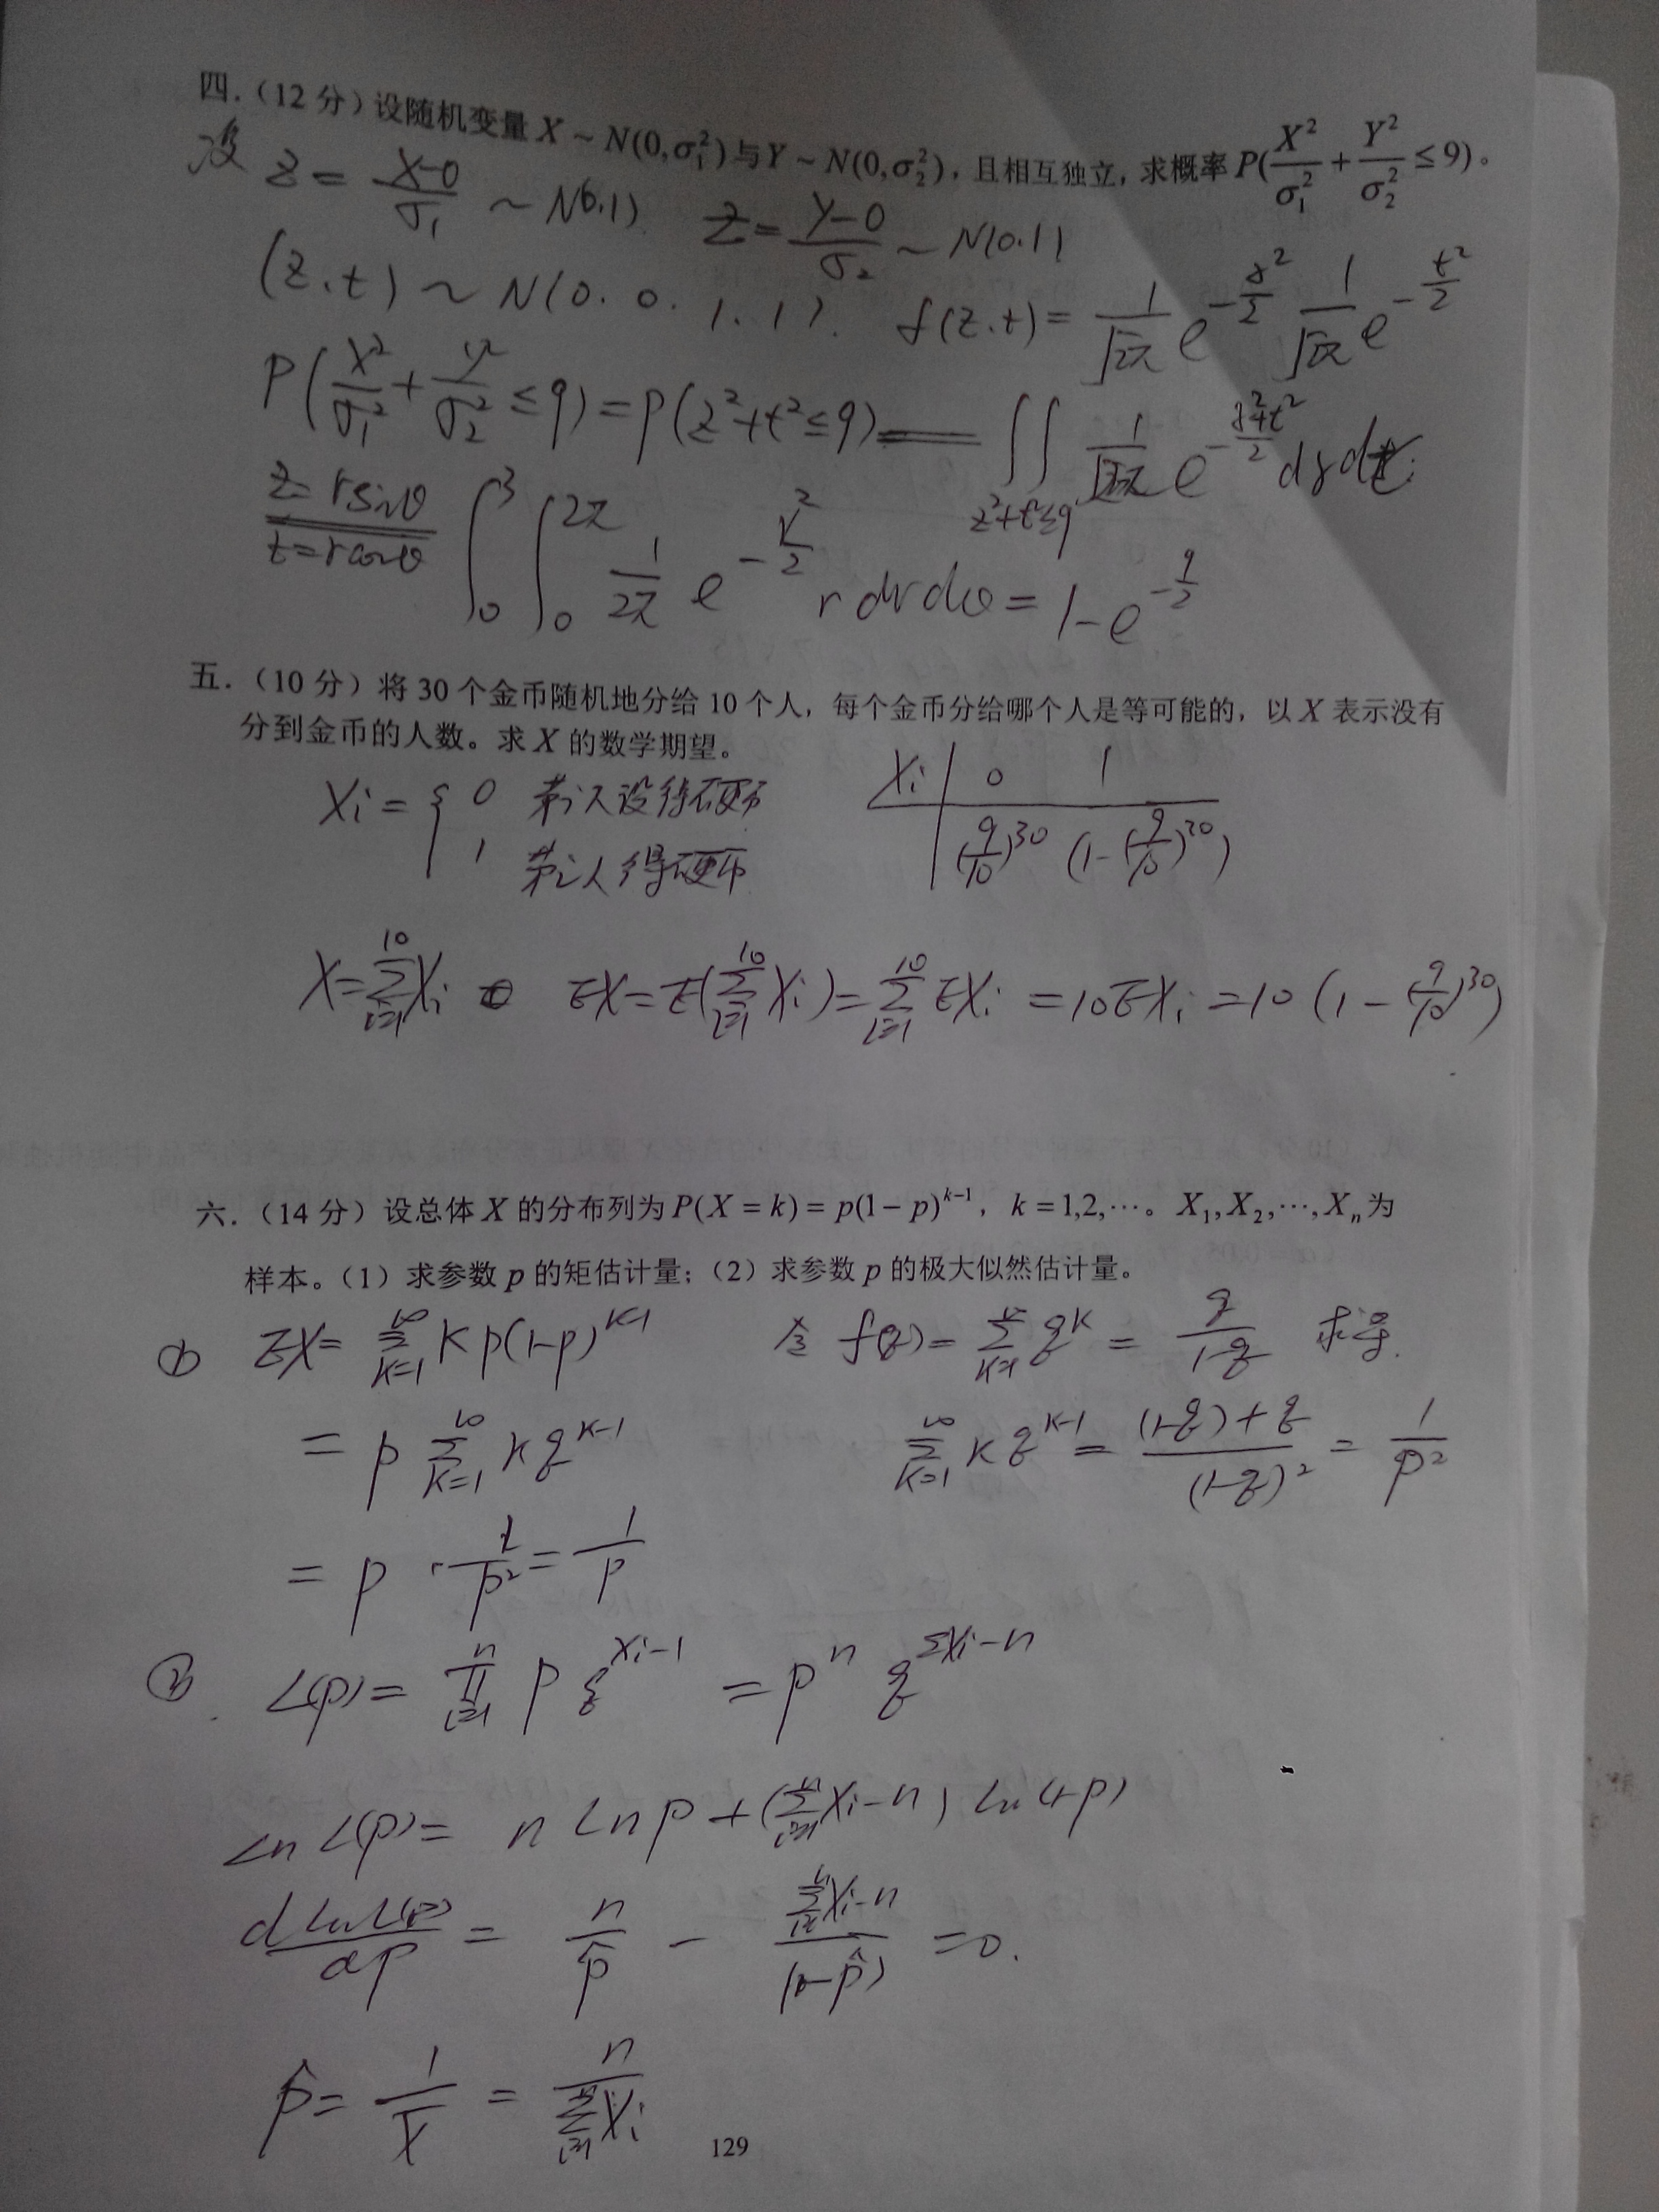 四.（12 分）设随机变量 X ~ N(0,σ₁²)与Y ~ N(0,σ₂²)，且相互独立，求概率 P(X²/σ₁² + Y²/σ₂² ≤ 9)。
设 Z = (X-0)/σ₁ ~ N(0.1) Z = (Y-0)/σ₂ ~ N(0.1)
(z.t) ~ N(0. 0. 1. 1). f(z.t) = 1/√2π e^(-z²/2) 1/√2π e^(-t²/2)
P(X²/σ₁² + Y²/σ₂² ≤ 9) = P(z²+t² ≤ 9) = ∬_(z²+t²≤9) 1/2π e^(-(z²+t²)/2) dzdt
z=rsinθ t=rcosθ ∫₀³ ∫₀^2π 1/2π e^(-r²/2) r dr dθ = 1-e^(-9/2)
五.（10 分）将 30 个金币随机地分给 10 个人，每个金币分给哪个人是等可能的，以 X 表示没有
分到金币的人数。求 X 的数学期望。
Xi = { 0 第i人没得硬币 Xi | 0 1
1 第i人得硬币 (9/10)^30 (1-(9/10)^30)
X=∑_(i=1)^10 Xi EX=E(∑_(i=1)^10 Xi)=∑_(i=1)^10 EXi =10EXi =10 (1-(9/10)^30)
六.（14 分）设总体 X 的分布列为 P(X = k) = p(1-p)^(k-1)， k = 1,2,⋯。 X₁,X₂,⋯,Xₙ为
样本。（1）求参数 p 的矩估计量；（2）求参数 p 的极大似然估计量。
① EX= ∑_(k=1)^∞ k p(1-p)^(k-1) 令 f(q)= ∑_(k=1)^∞ q^k = q/(1-q) 求导.
= p ∑_(k=1)^∞ k q^(k-1) ∑_(k=1)^∞ k q^(k-1) = ((1-q)+q)/(1-q)² = 1/p²
= p · 1/p² = 1/p
② L(p)= ∏_(i=1)^n p q^(Xi-1) = p^n q^(∑Xi-n)
Ln L(p)= n Ln p +(∑_(i=1)^n Xi-n) Ln(1-p)
d LnL(p)/dp = n/p̂ - (∑_(i=1)^n Xi-n)/(1-p̂) =0.
p̂= 1/X̄ = n/∑_(i=1)^n Xi
129